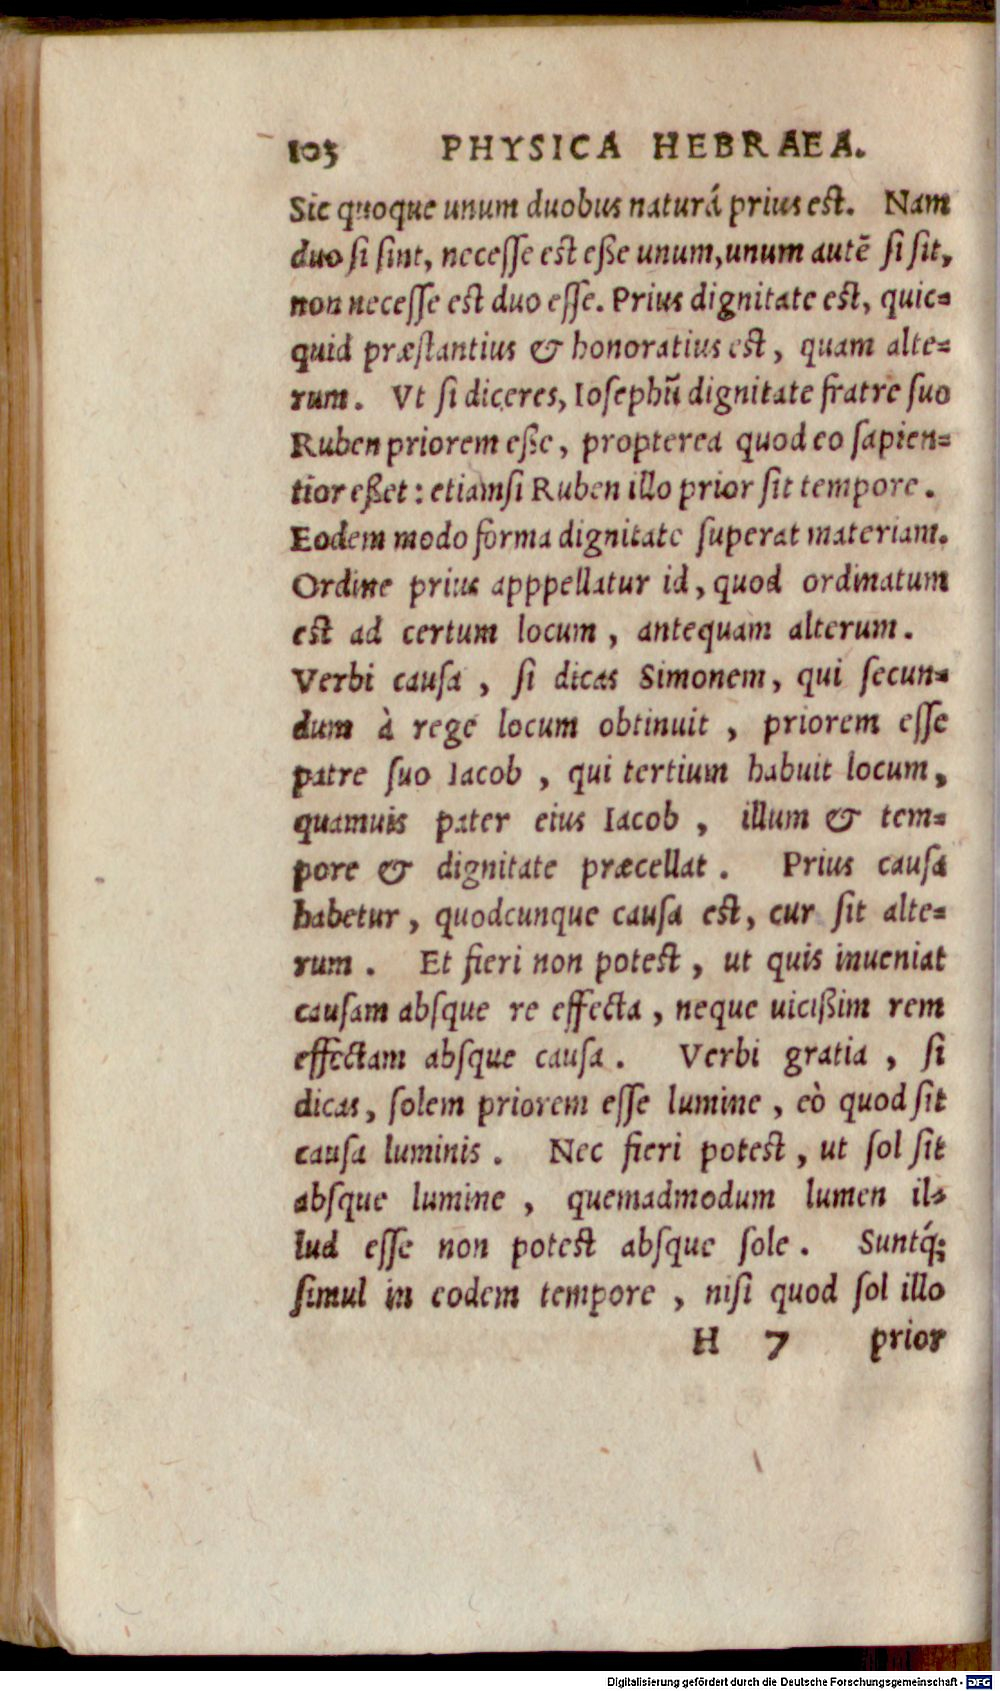 103 PHYSICA HEBRAEA.
Sic quoque unum duobus naturâ prius est. Nam
duo si sint, necesse est eße unum, unum autē si sit,
non necesse est duo esse. Prius dignitate est, quic=
quid præstantius & honoratius est, quam alte=
rum. Vt si diceres, Iosephū dignitate fratre suo
Ruben priorem eße, propterea quod eo sapien=
tior eßet: etiamsi Ruben illo prior sit tempore.
Eodem modo forma dignitate superat materiam.
Ordine prius apppellatur id, quod ordinatum
est ad certum locum, antequam alterum.
Verbi causa, si dicas Simonem, qui secun=
dum à rege locum obtinuit, priorem esse
patre suo Iacob, qui tertium habuit locum,
quamuis pater eius Iacob, illum & tem=
pore & dignitate præcellat. Prius causa
habetur, quodcunque causa est, cur sit alte=
rum. Et fieri non potest, ut quis inueniat
causam absque re effecta, neque uicißim rem
effectam absque causa. Verbi gratia, si
dicas, solem priorem esse lumine, eò quod sit
causa luminis. Nec fieri potest, ut sol sit
absque lumine, quemadmodum lumen il=
lud esse non potest absque sole. Suntq́;
simul in eodem tempore, nisi quod sol illo
H 7 prior
Digitalisierung gefördert durch die Deutsche Forschungsgemeinschaft - DFG